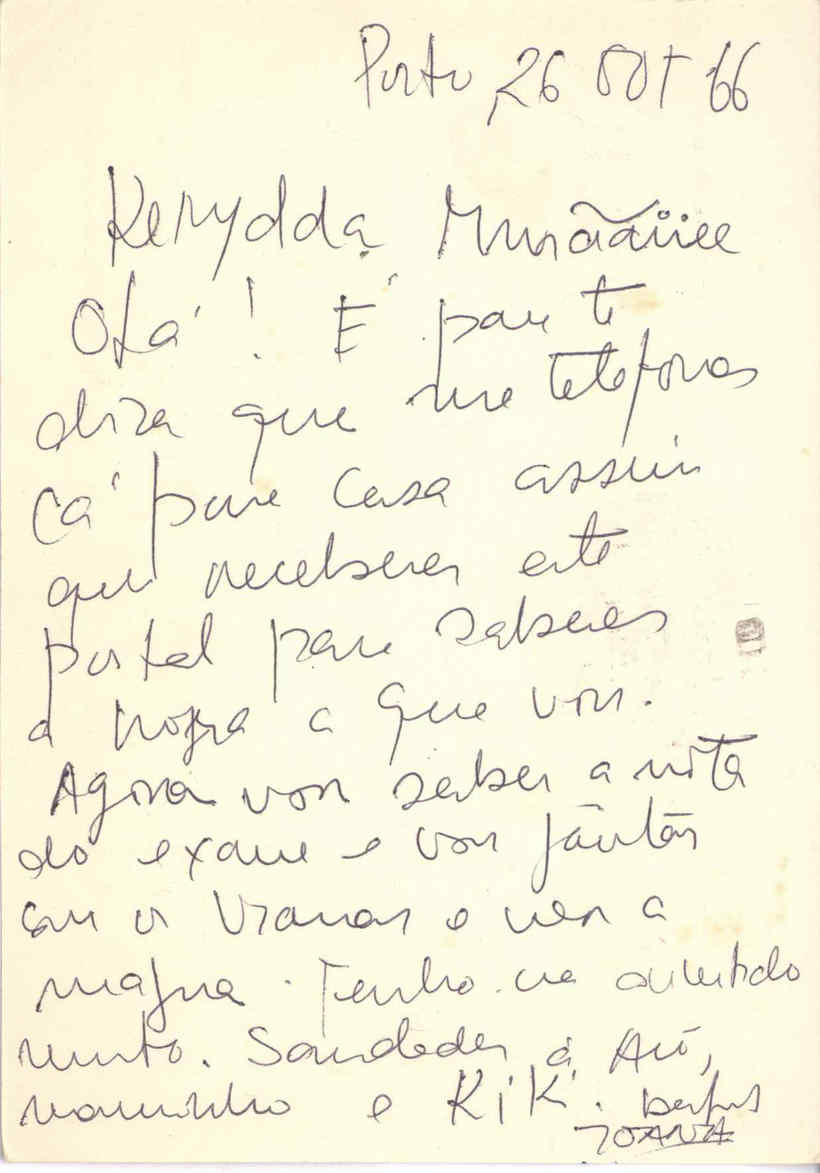 Porto, 26 OUT 66
Kerydda Mumãããiiee
Olá! É para te
dizer que me telefones
cá para casa assim
que receberes este
postal para saberes
a que vou.
Agora vou saber a nota
do exame e vou jantar
com os e ver a
magna. Tenho-me divertido
muito. Saudades à Avó,
e Kiki. beijos
JOANA